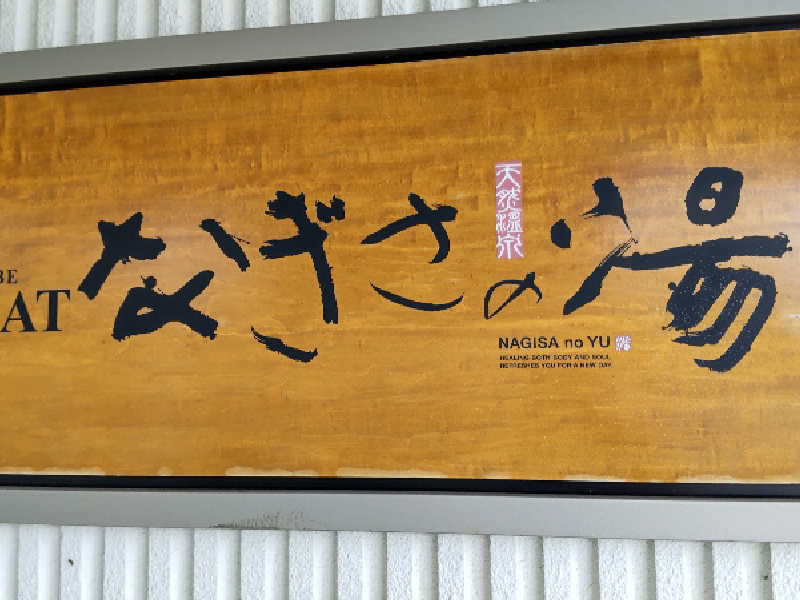 BE
AT
なぎさの湯
天然温泉
NAGISA no YU
HEALING BOTH BODY AND SOUL
REFRESHES YOU FOR A NEW DAY